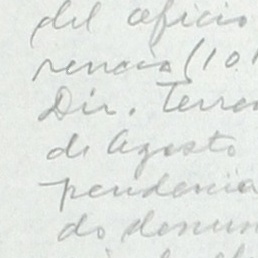 del oficio
rencia (10
Dir. Terre
de Agosto
pendencia
do denun